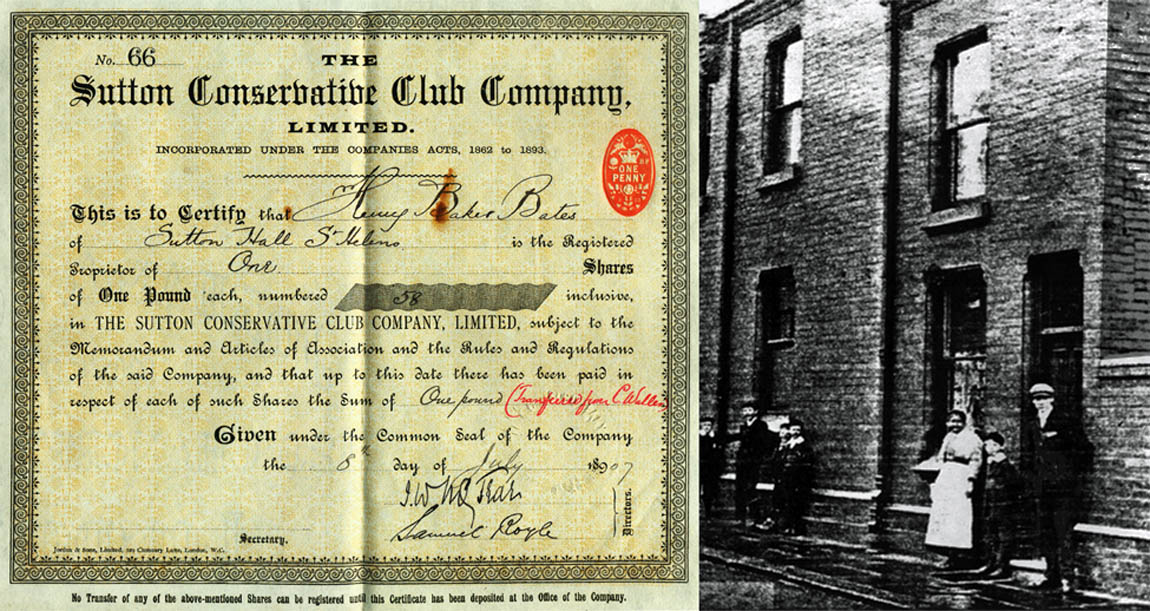 No. 66
THE
Sutton Conservative Club Company,
LIMITED.
INCORPORATED UNDER THE COMPANIES ACTS, 1862 to 1893.
ONE
PENNY
This is to Certify that Henry Baker Bates
of Sutton Hall St Helens is the Registered
Proprietor of One Shares
of One Pound each, numbered 58 inclusive,
in THE SUTTON CONSERVATIVE CLUB COMPANY, LIMITED, subject to the
Memorandum and Articles of Association and the Rules and Regulations
of the said Company, and that up to this date there has been paid in
respect of each of such Shares the Sum of One pound (Transferred from C
Given under the Common Seal of the Company
the 8th day of July 1907
Samuel Royle
Directors.
Secretary.
Jordan & Sons, Limited, 120 Chancery Lane, London, W.C.
No Transfer of any of the above-mentioned Shares can be registered until this Certificate has been deposited at the Office of the Company.